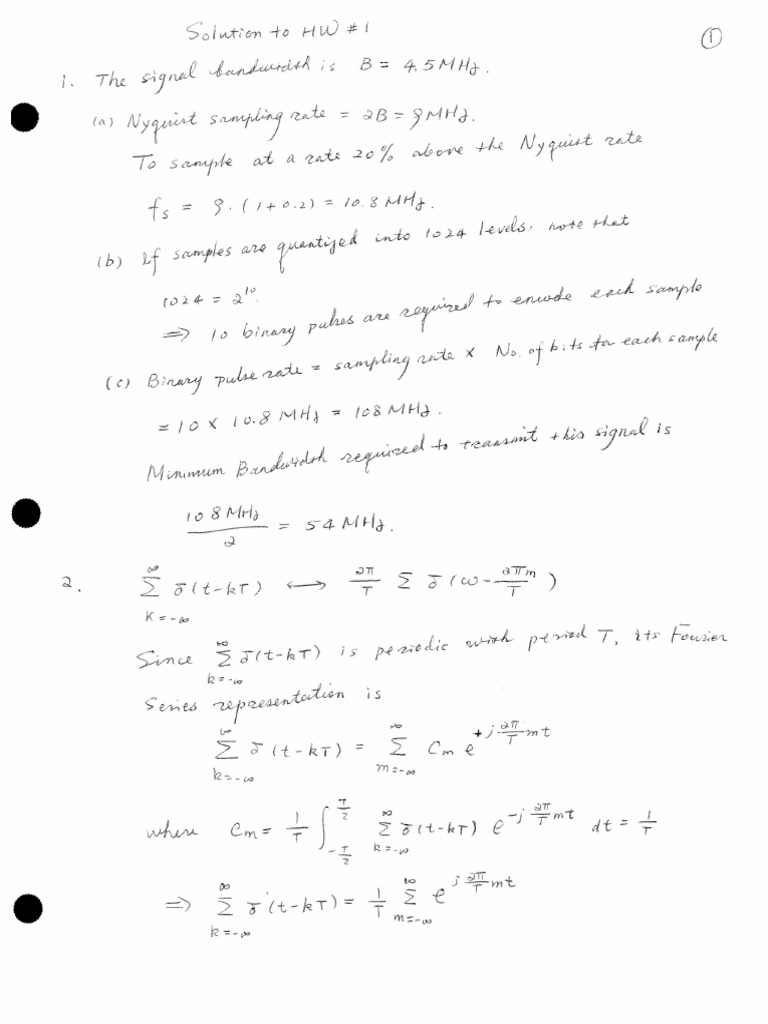 Solution to HW #1
①
1. The signal bandwidth is B = 4.5 MHz.
(a) Nyquist sampling rate = 2B = 9 MHz.
To sample at a rate 20% above the Nyquist rate
fs = 9 · (1+0.2) = 10.8 MHz.
(b) If samples are quantized into 1024 levels, note that
1024 = 2^10.
⇒ 10 binary pulses are required to encode each sample
(c) Binary pulse rate = sampling rate × No. of bits for each sample
= 10 × 10.8 MHz = 108 MHz.
Minimum Bandwidth required to transmit this signal is
108 MHz / 2 = 54 MHz.
2. ∑_{k=-∞}^{∞} δ(t-kT) ⟷ 2π/T ∑ δ(ω - 2πm/T)
Since ∑_{k=-∞}^{∞} δ(t-kT) is periodic with period T, its Fourier
Series representation is
∑_{k=-∞}^{∞} δ(t-kT) = ∑_{m=-∞}^{∞} C_m e^{+j 2π/T mt}
where C_m = 1/T ∫_{-T/2}^{T/2} ∑_{k=-∞}^{∞} δ(t-kT) e^{-j 2π/T mt} dt = 1/T
⇒ ∑_{k=-∞}^{∞} δ(t-kT) = 1/T ∑_{m=-∞}^{∞} e^{j 2π/T mt}